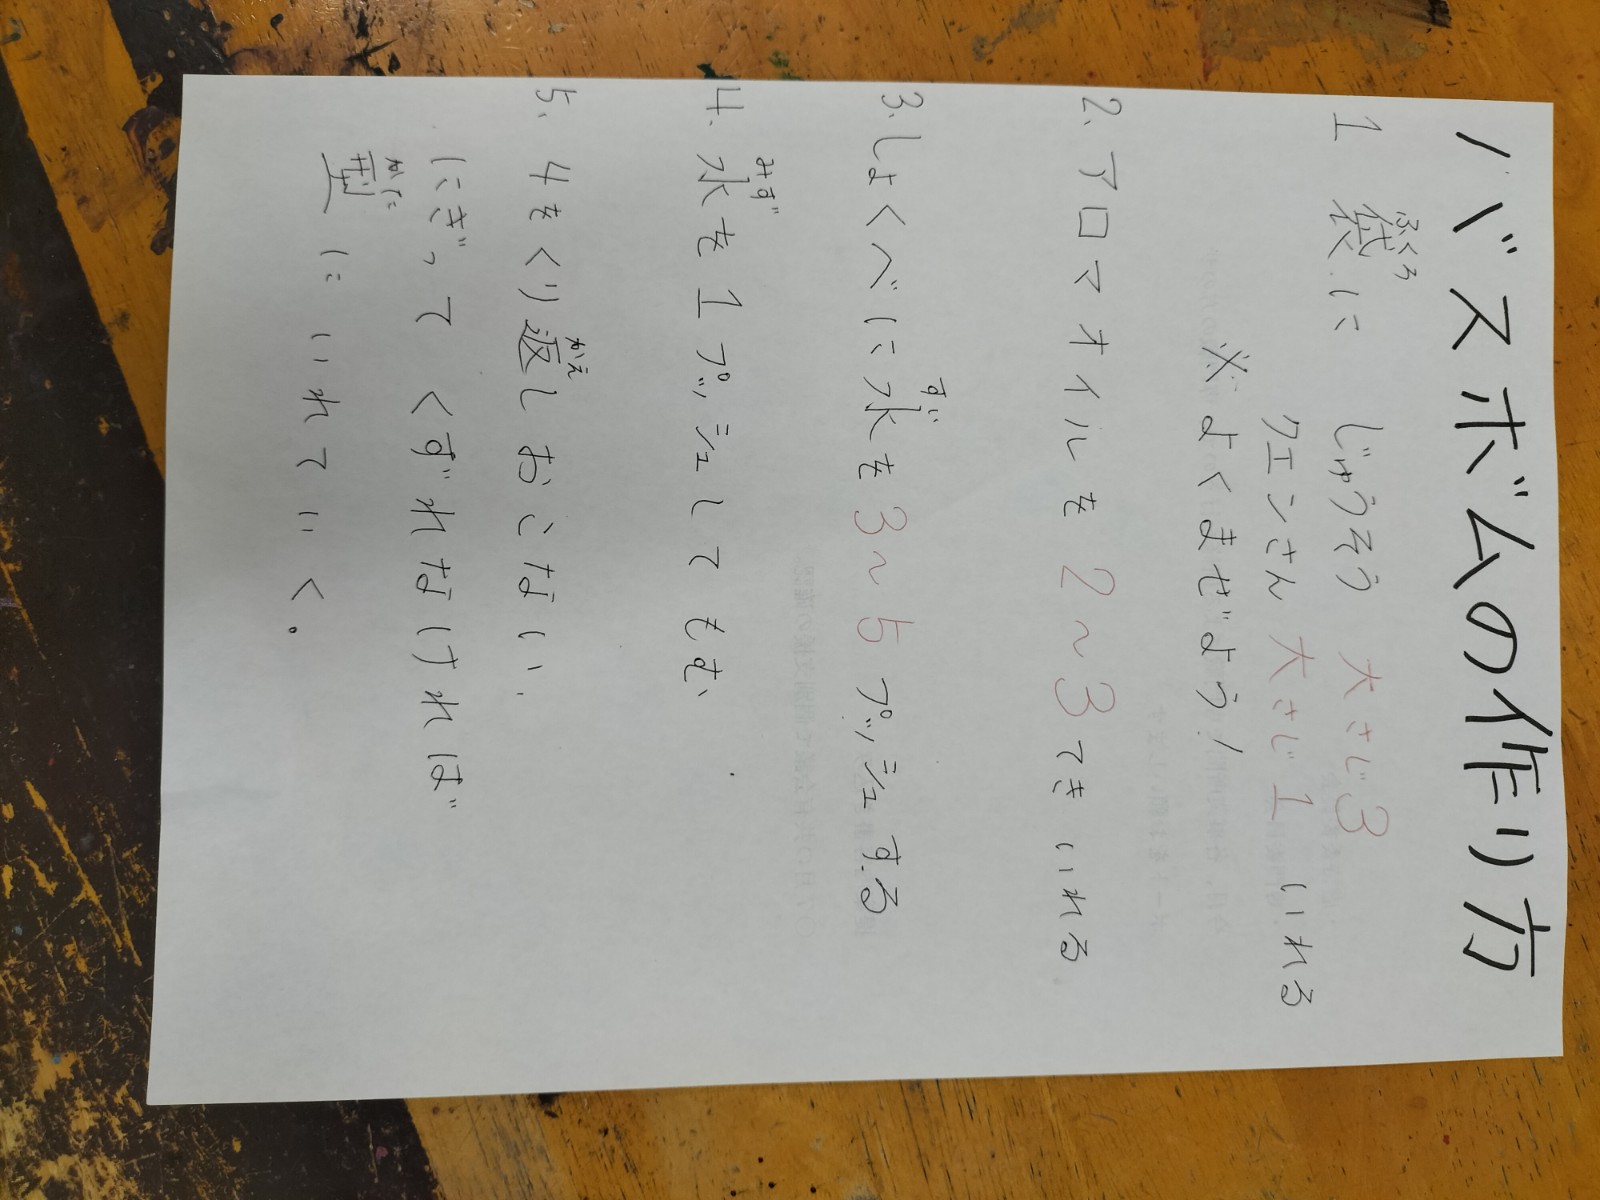 バスボムの作り方
1 袋に じゅうそう 大さじ3
ふくろ
クエンさん 大さじ1 いれる
※よくまぜよう!
2、アロマオイルを2~3てき いれる
3、しょくべに水を3~5プッシュする
すい
4、水を1プッシュしてもむ、
みず
5、4をくり返しおこない、
かえ
にぎって くずれなければ
型に いれていく。
かた